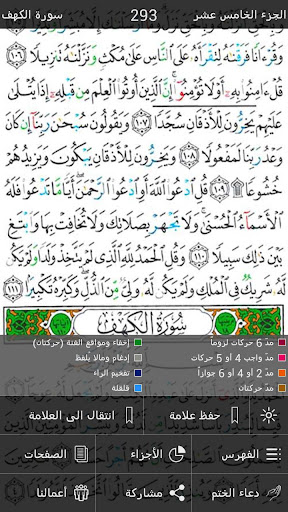 الجزء الخامس عشر 293 سورة الكهف
وَقُرْءَانًا فَرَقْنَٰهُ لِتَقْرَأَهُۥ عَلَى ٱلنَّاسِ عَلَىٰ مُكْثٍ وَنَزَّلْنَٰهُ تَنزِيلًا ١٠٦
قُلْ ءَامِنُوا۟ بِهِۦٓ أَوْ لَا تُؤْمِنُوٓا۟ إِنَّ ٱلَّذِينَ أُوتُوا۟ ٱلْعِلْمَ مِن قَبْلِهِۦٓ إِذَا يُتْلَىٰ
عَلَيْهِمْ يَخِرُّونَ لِلْأَذْقَانِ سُجَّدًا ١٠٧ وَيَقُولُونَ سُبْحَٰنَ رَبِّنَآ إِن كَانَ
وَعْدُ رَبِّنَا لَمَفْعُولًا ١٠٨ وَيَخِرُّونَ لِلْأَذْقَانِ يَبْكُونَ وَيَزِيدُهُمْ
خُشُوعًا ١٠٩ قُلِ ٱدْعُوا۟ ٱللَّهَ أَوِ ٱدْعُوا۟ ٱلرَّحْمَٰنَ أَيًّا مَّا تَدْعُوا۟ فَلَهُ
ٱلْأَسْمَآءُ ٱلْحُسْنَىٰ وَلَا تَجْهَرْ بِصَلَاتِكَ وَلَا تُخَافِتْ بِهَا وَٱبْتَغِ
بَيْنَ ذَٰلِكَ سَبِيلًا ١١٠ وَقُلِ ٱلْحَمْدُ لِلَّهِ ٱلَّذِى لَمْ يَتَّخِذْ وَلَدًا وَلَمْ يَكُن
لَّهُۥ شَرِيكٌ فِى ٱلْمُلْكِ وَلَمْ يَكُن لَّهُۥ وَلِىٌّ مِّنَ ٱلذُّلِّ وَكَبِّرْهُ تَكْبِيرًۢا ١١١
سُورَةُ الكَهْفِ
مدّ 6 حركات لزوماً
إخفاء ومواقع الغنة (حركتان)
مدّ واجب 4 أو 5 حركات
إدغام ومالا يُلفظ
مدّ 2 أو 4 أو 6 جوازاً
تفخيم الراء
مدّ حركتان
قلقلة
حفظ علامة
انتقال الى العلامة
الفهرس
الأجزاء
الصفحات
دعاء الختم
مشاركة
أعمالنا